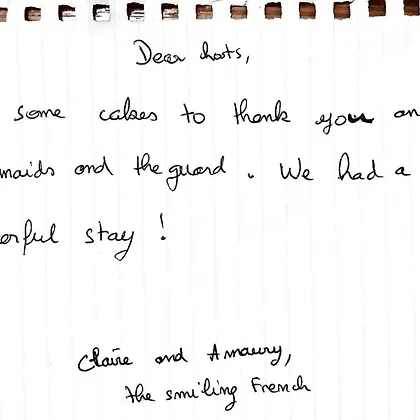 Dear hosts,
some cakes to thank you an
maids and the guard. We had a
erful stay !
Claire and Amaury,
the smiling French